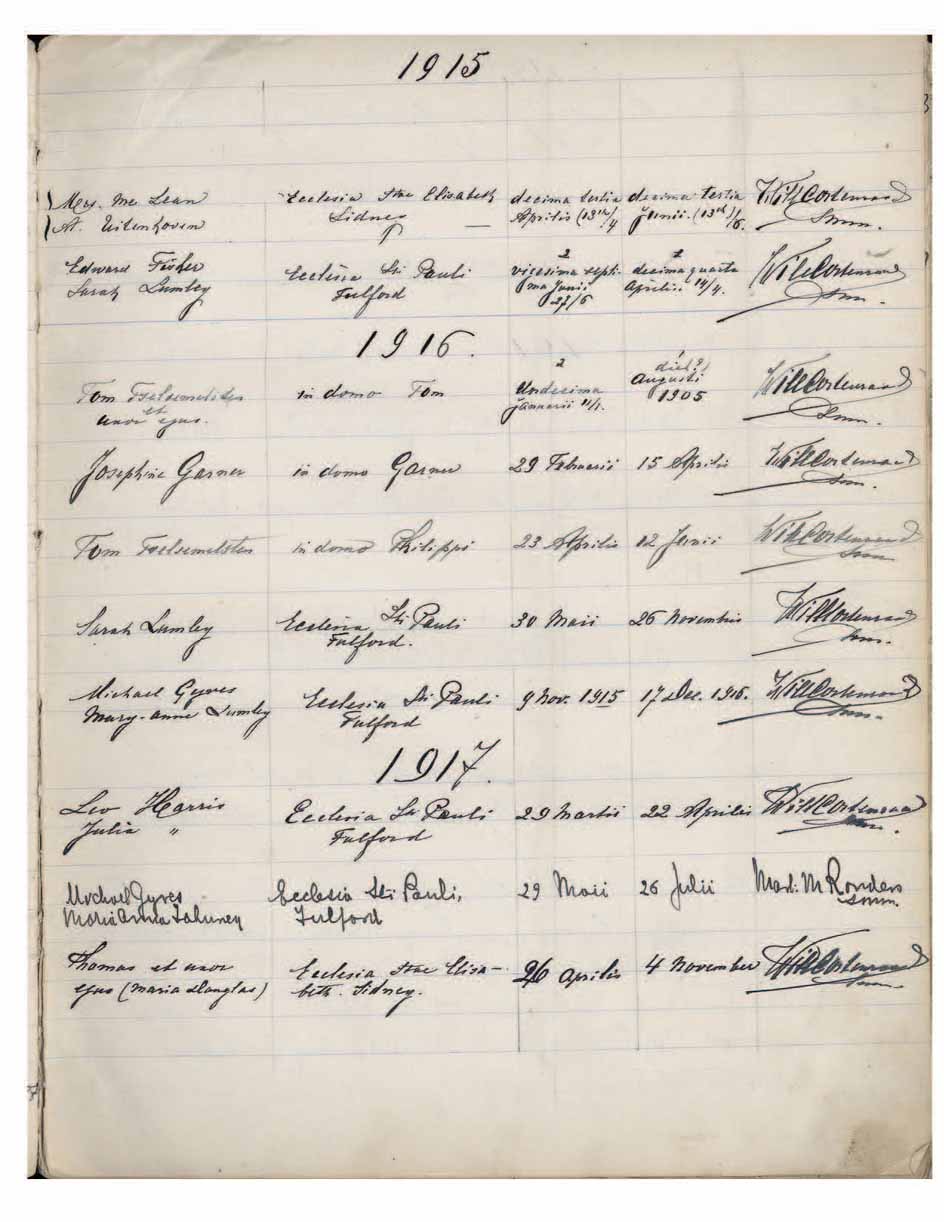 1915
Mrs. Mc Lean Ecclesia Stae Elisabeth decima tertia decima tertia Will Cortenraad
A. Uitenhoven Sidney — Aprilis (13th)/4 Junii. (13th)/6. Smm.
Edward Fisher Ecclesia Sti Pauli vicesima septi decima quarta Will Cortenraad
Sarah Lumley Fulford ma Junii Aprilis 14/4. Smm.
27/6
1916.
Tom et in domo Tom Undecima Augusti Will Cortenraad
uxor ejus. Januarii 11/1. 1905 Smm.
Josephine Garner in domo Garner 29 Februarii 15 Aprilis Will Cortenraad
Smm.
Tom in domo Philippi 23 Aprilis 12 Junii Will Cortenraad
Smm.
Sarah Lumley Ecclesia Sti Pauli 30 Maii 26 Novembris Will Cortenraad
Fulford. Smm.
Michael Gyves Ecclesia Sti Pauli 9 Nov. 1915 17 Dec. 1916. Will Cortenraad
Mary-anne Lumley Fulford Smm.
1917.
Leo Harris Ecclesia Sti Pauli 29 Martii 22 Aprilis Will Cortenraad
Julia " Fulford Smm.
Michael Gyves Ecclesia Sti Pauli, 29 Maii 26 Julii Mad: M. Ronden
Maria Anna Fulford Smm.
Thomas et uxor Ecclesia Stae Elisa- 26 Aprilis 4 November Will Cortenraad
ejus (Maria Douglas) beth. Sidney. Smm.